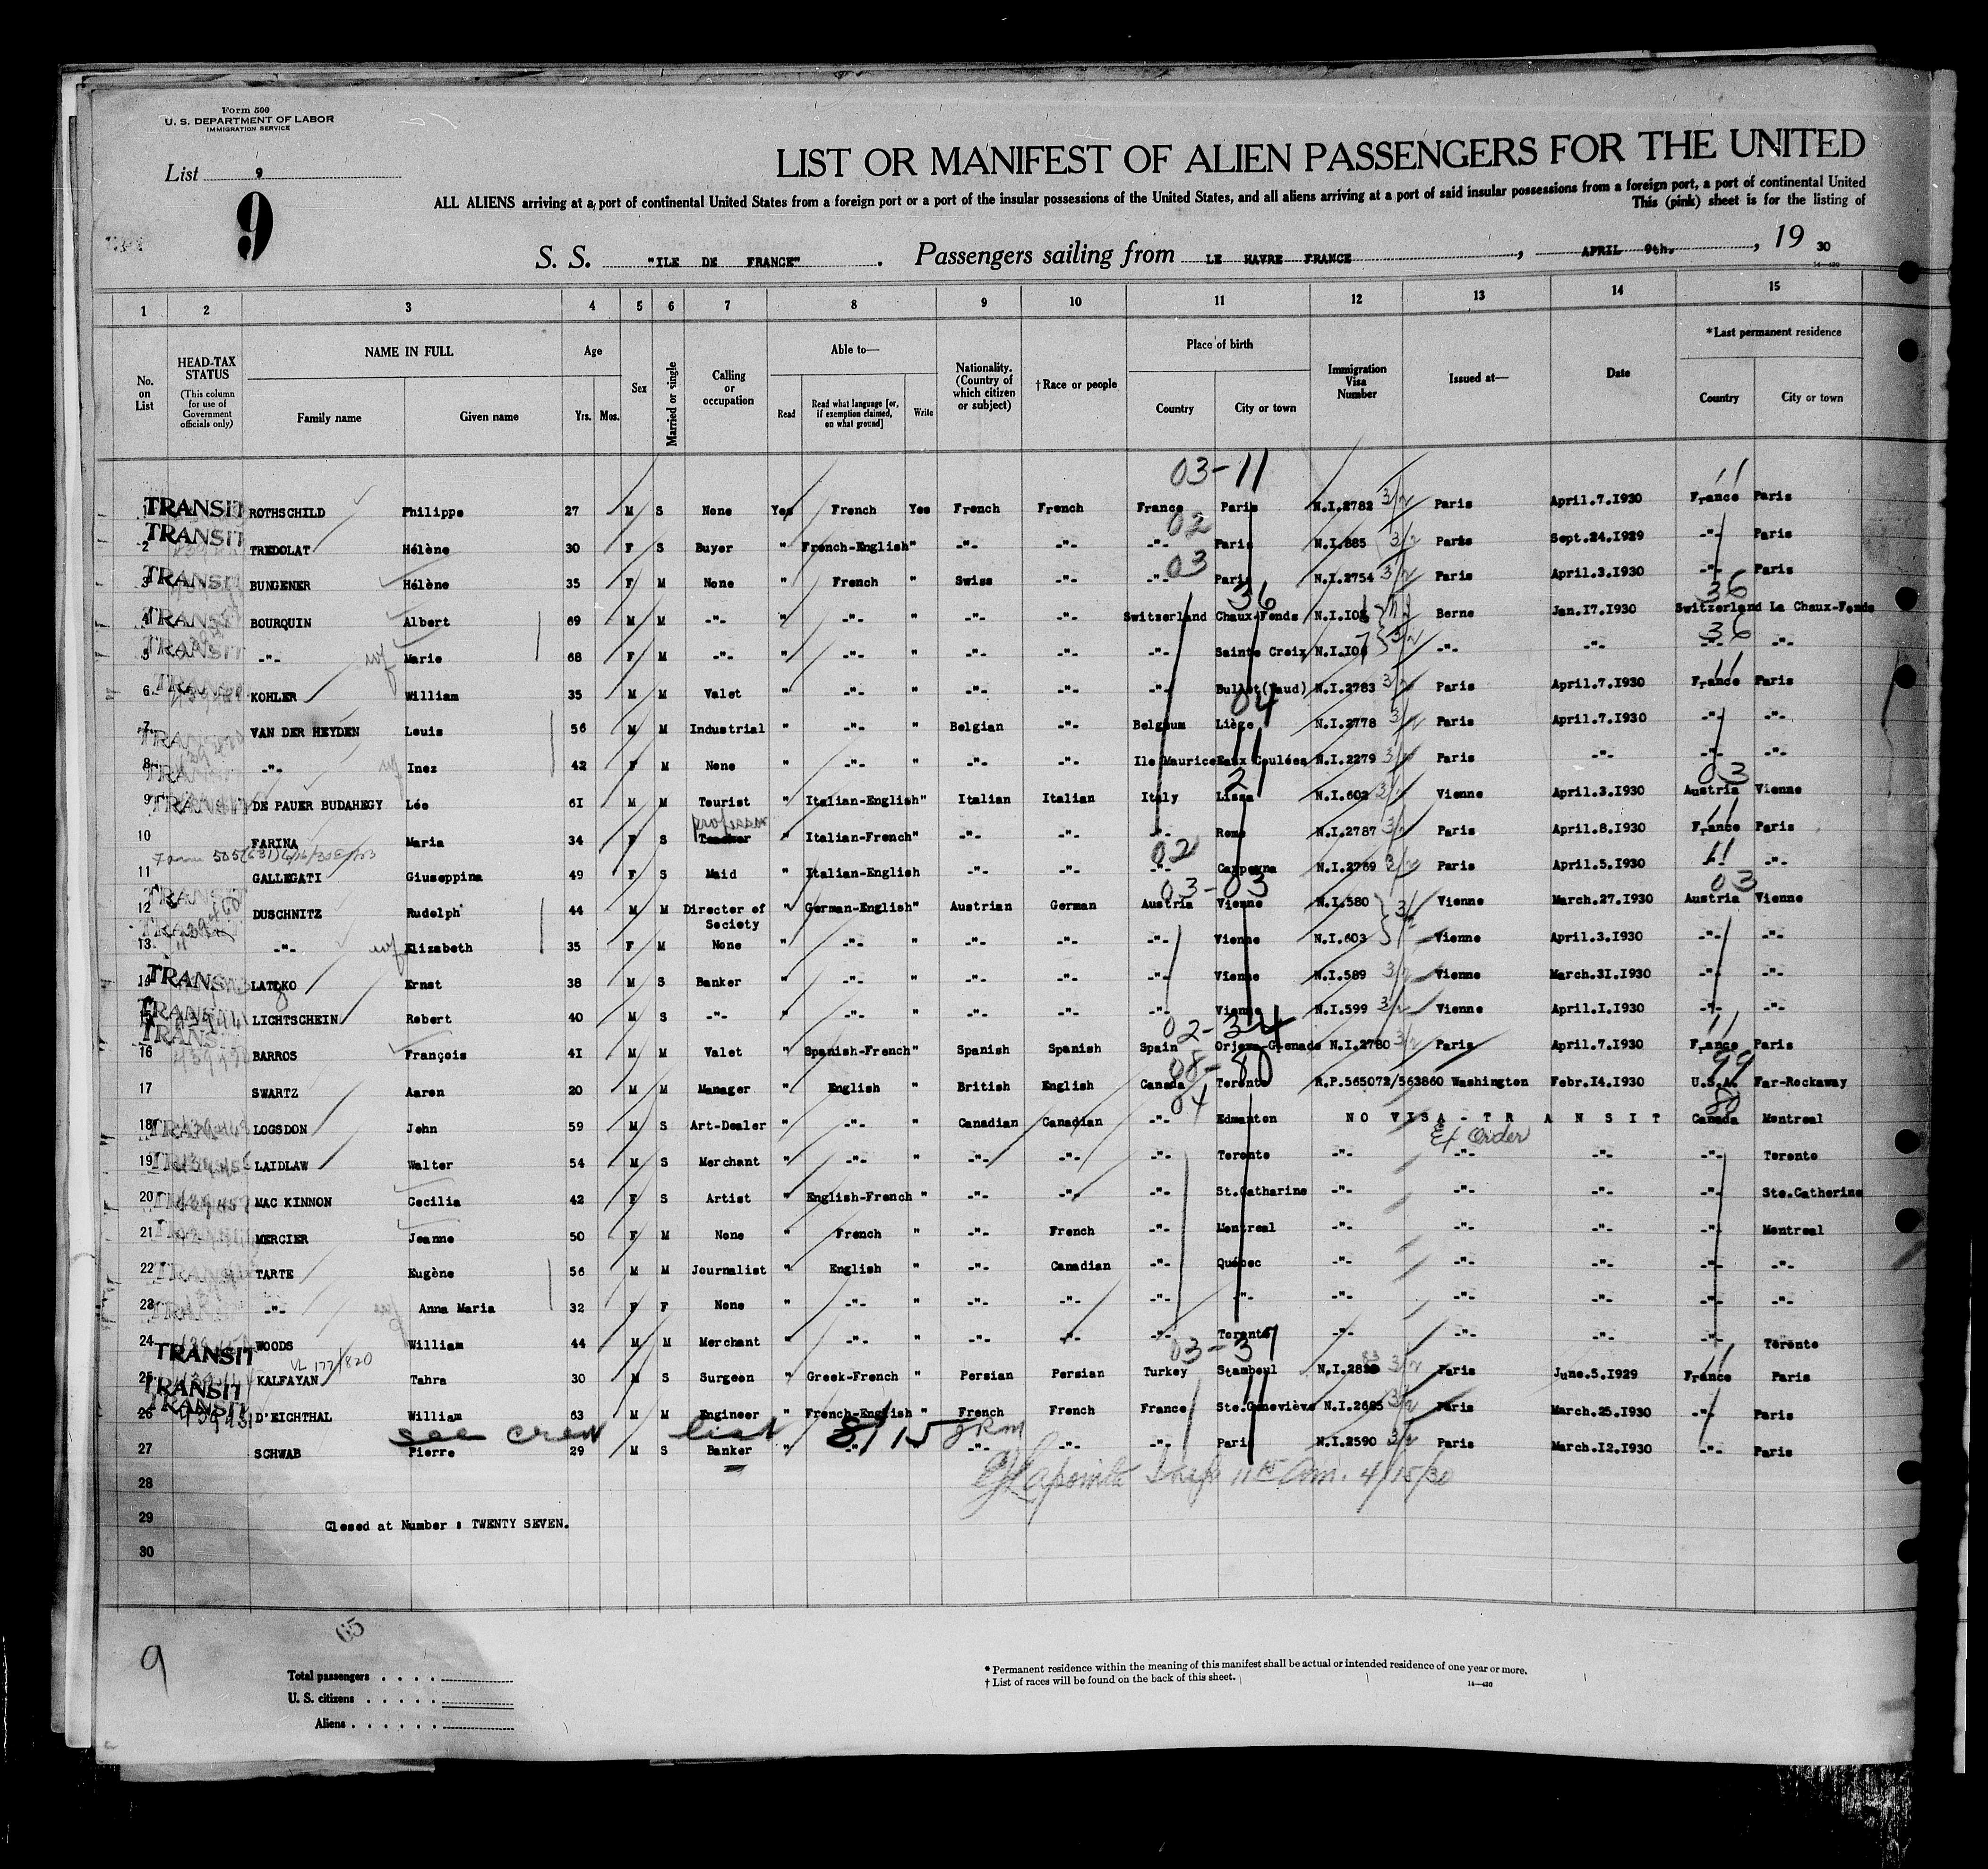 Form 500
U. S. DEPARTMENT OF LABOR
IMMIGRATION SERVICE
List 9
9
LIST OR MANIFEST OF ALIEN PASSENGERS FOR THE UNITED
ALL ALIENS arriving at a port of continental United States from a foreign port or a port of the insular possessions of the United States, and all aliens arriving at a port of said insular possessions from a foreign port, a port of continental United
This (pink) sheet is for the listing of
S. S. "ILE DE FRANCE" . Passengers sailing from LE HAVRE FRANCE , APRIL 9th. , 19 30
14—430
1 2 3 4 5 6 7 8 9 10 11 12 13 14 15
No. on List
HEAD-TAX STATUS (This column for use of Government officials only)
NAME IN FULL Family name Given name
Age Yrs. Mos.
Sex
Married or single
Calling or occupation
Able to— Read Read what language [or, if exemption claimed, on what ground] Write
Nationality. (Country of which citizen or subject)
†Race or people
Place of birth Country City or town
Immigration Visa Number
Issued at—
Date
*Last permanent residence Country City or town
03-11 11
1 TRANSIT ROTHSCHILD Philippe 27 M S None Yes French Yes French French France Paris N.I.2782 3/2 Paris April.7.1930 France Paris
02
2 TRANSIT TREDOLAT Hélène 30 F S Buyer " French-English " -"- -"- -"- Paris N.I.885 3/2 Paris Sept.24.1929 -"- Paris
03
3 TRANSIT BUNGENER Hélène 35 F M None " French " Swiss -"- -"- Paris N.I.2754 3/2 Paris April.3.1930 -"- Paris
36 36
4 TRANSIT BOURQUIN Albert 69 M M -"- " -"- " -"- -"- Switzerland Chaux-Fonds Berne Jan.17.1930 Switzerland La Chaux-Fonds
36
5 TRANSIT -"- wf Marie 68 F M -"- " -"- " -"- -"- -"- Sainte Croix 3/2 -"- -"- -"- -"-
11
6 TRANSIT KOHLER William 35 M M Valet " -"- " -"- -"- -"- Bullet(Vaud) N.I.2783 3/2 Paris April.7.1930 France Paris
04
7 TRANSIT VAN DER HEYDEN Louis 56 M M Industrial " -"- " Belgian -"- Belgium Liège N.I.2778 3/2 Paris April.7.1930 -"- -"-
8 TRANSIT -"- wf Inez 42 F M None " -"- " -"- -"- Ile Maurice Eaux Coulées N.I.2279 3/2 Paris -"- -"- -"-
21 03
9 TRANSIT DE PAUER BUDAHEGY Léo 61 M M Tourist " Italian-English " Italian Italian Italy Lissa N.I.602 3/2 Vienne April.3.1930 Austria Vienne
professor 11
10 FARINA Maria 34 F S Teacher " Italian-French " -"- -"- -"- Rome N.I.2787 3/2 Paris April.8.1930 France Paris
02 11
11 GALLEGATI Giuseppina 49 F S Maid " Italian-English -"- -"- -"- Carpegna N.I.2769 3/2 Paris April.5.1930 -"- -"-
03-03 03
12 TRANSIT DUSCHNITZ Rudolph 44 M M Director of Society " German-English " Austrian German Austria Vienne N.I.580 3/2 Vienne March.27.1930 Austria Vienne
13 TRANSIT -"- wf Elizabeth 35 F M None " -"- " -"- -"- -"- Vienne N.I.603 Vienne April.3.1930 -"- -"-
14 TRANSIT Ernst 38 M S Banker " -"- " -"- -"- -"- Vienne N.I.589 3/2 Vienne March.31.1930 -"- -"-
15 TRANSIT LICHTSCHEIN Robert 40 M S -"- " -"- " -"- -"- -"- Vienne N.I.599 3/2 Vienne April.1.1930 -"- -"-
02-34 11
16 TRANSIT BARROS François 41 M M Valet " Spanish-French " Spanish Spanish Spain Orjeva-Grenade N.I.2780 3/2 Paris April.7.1930 France Paris
08-80 99
17 SWARTZ Aaron 20 M M Manager " English " British English Canada Toronto R.P.565072/563860 Washington Febr.14.1930 U.S.A. Far-Rockaway
04 80
18 TRANSIT LOGSDON John 59 M S Art-Dealer " -"- " Canadian Canadian -"- Edmonton NO VISA - TRANSIT Canada Montreal
Ex Order
19 TRANSIT LAIDLAW Walter 54 M S Merchant " -"- " -"- -"- -"- Toronto -"- -"- -"- -"- Toronto
20 TRANSIT MAC KINNON Cecilia 42 F S Artist " English-French " -"- -"- -"- St.Catharine -"- -"- -"- -"- Ste.Catherine
21 TRANSIT MERCIER Jeanne 50 F M None " French " -"- French -"- Montreal -"- -"- -"- -"- Montreal
22 TRANSIT TARTE Eugène 56 M M Journalist " English " -"- Canadian -"- Québec -"- -"- -"- -"- -"-
23 TRANSIT -"- wf Anna Maria 32 F F None " -"- " -"- -"- -"- -"- -"- -"- -"- -"- -"-
24 TRANSIT WOODS William 44 M M Merchant " -"- " -"- -"- -"- Toronto -"- -"- -"- -"- Toronto
03-37 11
25 TRANSIT KALFAYAN Tahra 30 M S Surgeon " Greek-French " Persian Persian Turkey Stamboul 3/2 Paris June.5.1929 France Paris
26 TRANSIT D'EICHTHAL William 63 M M Engineer " French-English " French French France Ste.Geneviève N.I.2665 3/2 Paris March.25.1930 -"- Paris
see crew list 8/15
27 SCHWAB Pierre 29 M S Banker " -"- " -"- -"- -"- Paris N.I.2590 3/2 Paris March.12.1930 -"- Paris
28 Lapointe Insp 11 15 Am. 4/15/30
29 Closed at Number : TWENTY SEVEN.
30
65
9
Total passengers . . . .
U. S. citizens . . . . .
Aliens . . . . . .
* Permanent residence within the meaning of this manifest shall be actual or intended residence of one year or more.
† List of races will be found on the back of this sheet.
14—430